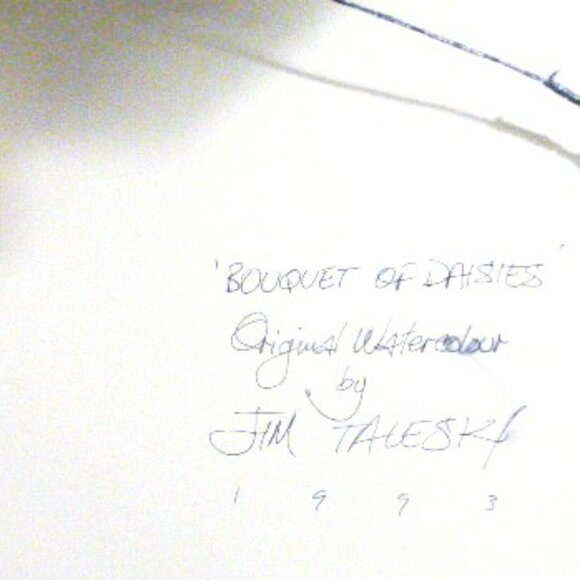 'BOUQUET OF DAISIES'
Original Watercolour
by
JIM TALESKY
1 9 9 3